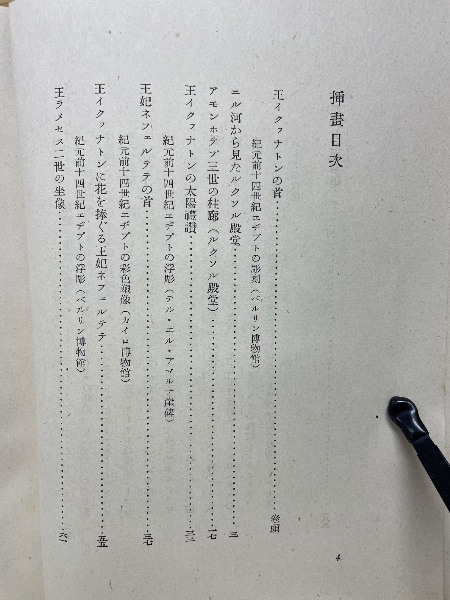 挿畫目次
王イクナトンの首……巻頭
紀元前十四世紀エヂプトの彫刻(ベルリン博物館)
ニル河から見たルクソル殿堂……三
アモンホテプ三世の柱廊(ルクソル殿堂)……一七
王イクナトンの太陽禮讃……三三
紀元前十四世紀エヂプトの浮彫(テル・エル・アマルナ崖碑)
王妃ネフェルテテの首……三七
紀元前十四世紀エヂプトの彩色塑像(カイロ博物館)
王イクナトンに花を捧ぐる王妃ネフェルテテ……五五
紀元前十四世紀エヂプトの浮彫(ベルリン博物館)
王ラメセス二世の坐像……六一